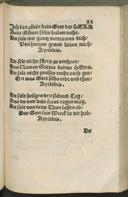 32
Ich bin allein dein Gott der HERR
Kein Götter solt du haben mehr
Du solt mir gantz vertrawen dich
Von hertzen grund lieben mich
Kyrioleis.
Du solt nicht zu unehren
Den Namen Gottes deines HERRN
Du solt nicht preisen recht noch gut
On was Gott selbs redt und thut
Kyrioleis.
Du solt heilgen den siebend Tag
das du und dein haus rugen mag
Du solt von deim thun lassen ab
Das Gott sein Werck in dir hab
Kyrioleis.
Du